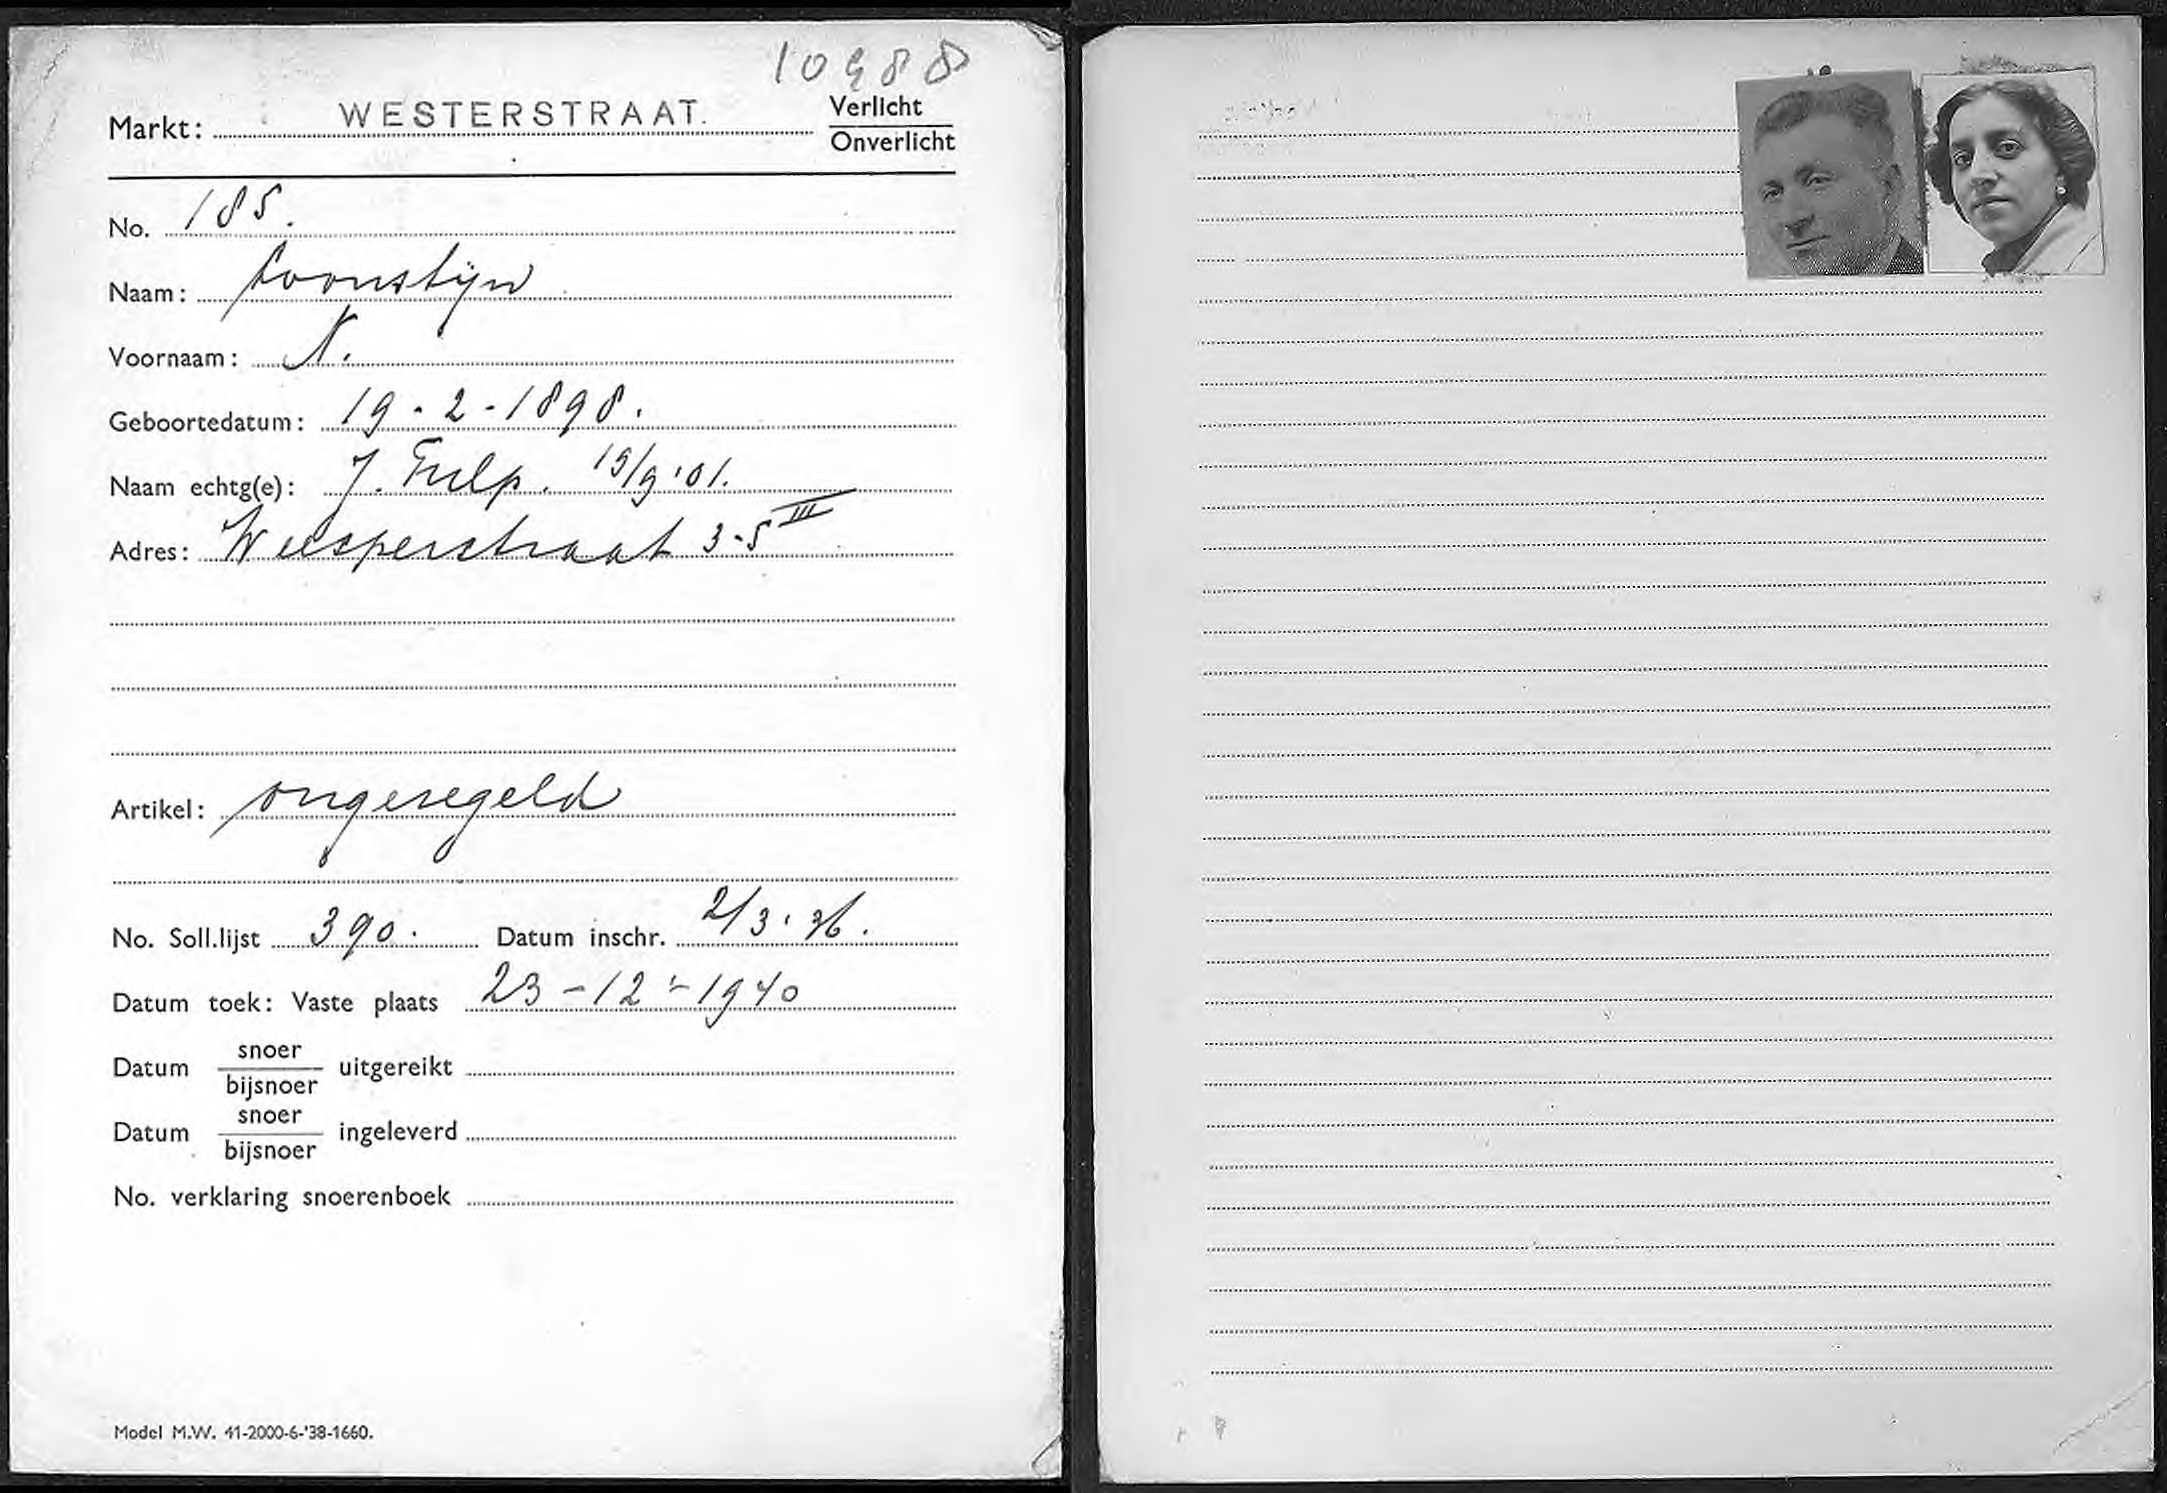 10988
Markt: WESTERSTRAAT. Verlicht
Onverlicht
No. 185.
Naam: Loonstijn
Voornaam: N.
Geboortedatum: 19-2-1898.
Naam echtg(e): J. Tulp. 15/9'01.
Adres: Weesperstraat 3-5 III
Artikel: ongeregeld
No. Soll.lijst 390. Datum inschr. 2/3'36.
Datum toek: Vaste plaats 23-12-1940
Datum snoer/bijsnoer uitgereikt
Datum snoer/bijsnoer ingeleverd
No. verklaring snoerenboek
Model M.W. 41-2000-6-'38-1660.